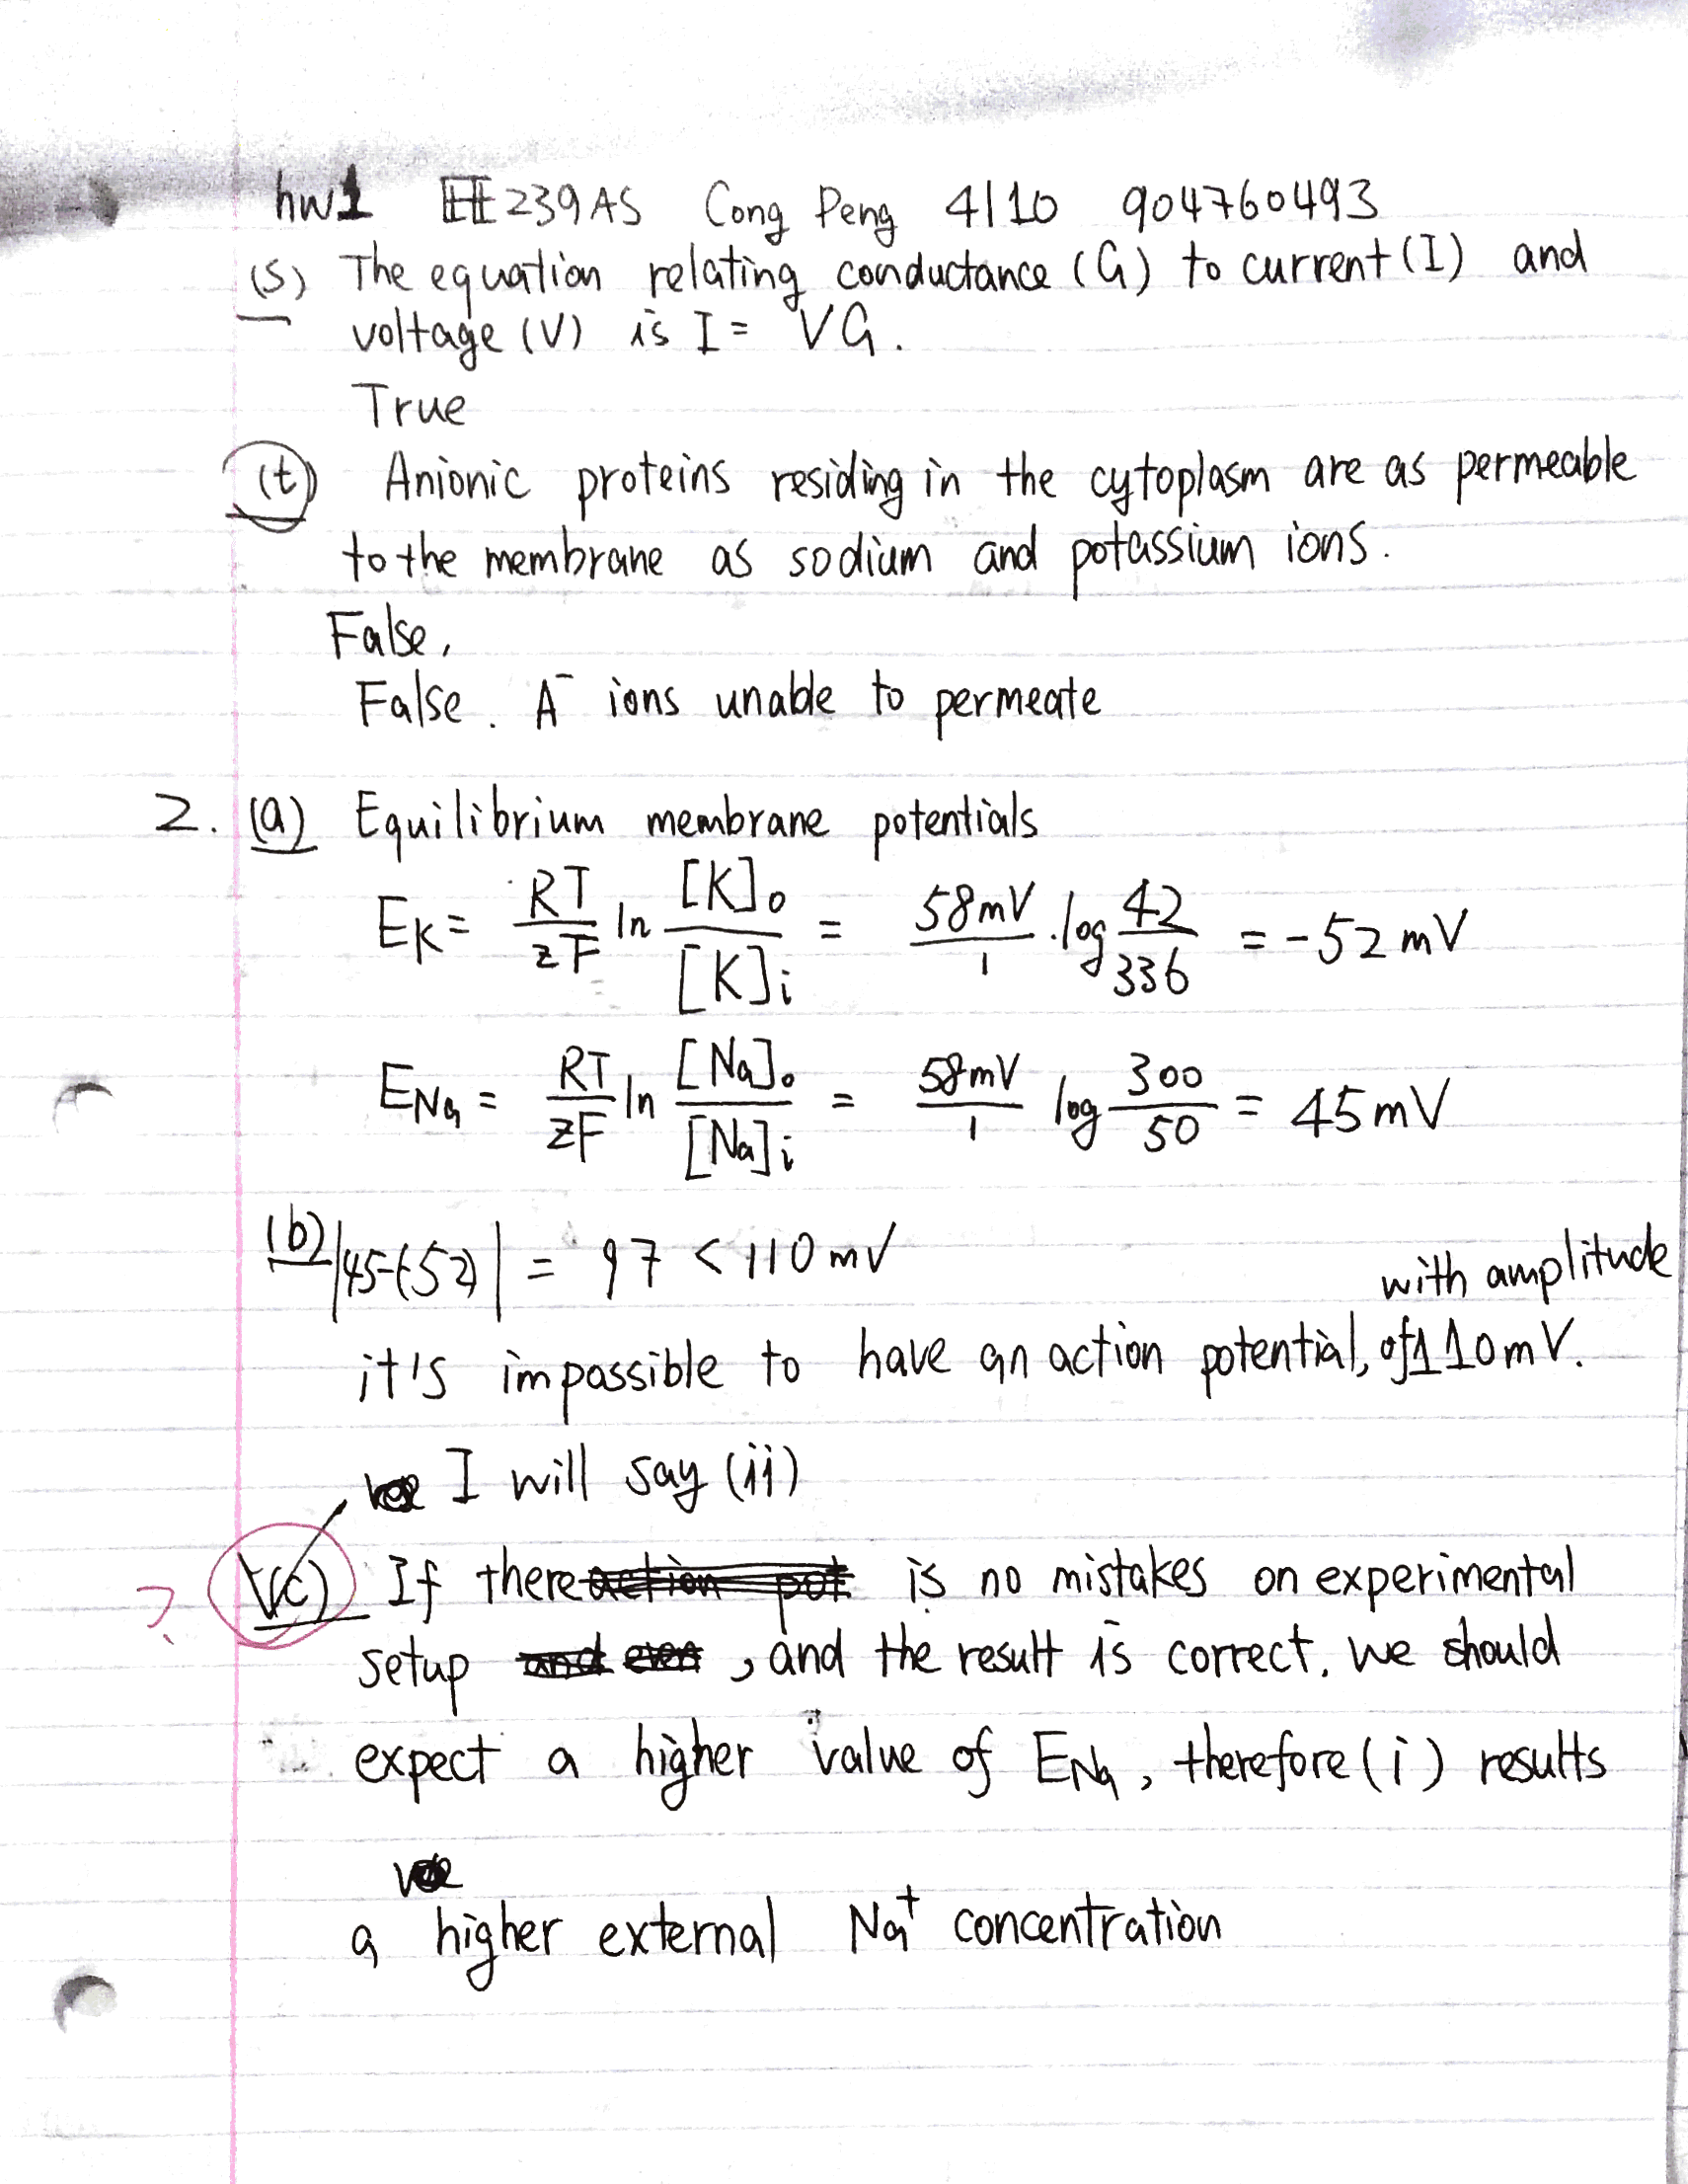 hw1 EE239AS Cong Peng 4/10 904760493
(s) The equation relating conductance (G) to current (I) and
voltage (V) is I = VG.
True
(t) Anionic proteins residing in the cytoplasm are as permeable
to the membrane as sodium and potassium ions.
False,
False. A⁻ ions unable to permeate
2. (a) Equilibrium membrane potentials
E_K = RT/zF ln [K]o/[K]i = 58mV/1 · log 42/336 = -52 mV
E_Na = RT/zF ln [Na]o/[Na]i = 58mV/1 log 300/50 = 45 mV
(b) |45-(-52)| = 97 < 110 mV
with amplitude
it's impossible to have an action potential, of 110mV.
I will say (ii)
? (c) If there action pot is no mistakes on experimental
setup and even , and the result is correct. we should
expect a higher value of E_Na, therefore (i) results
a higher external Na⁺ concentration